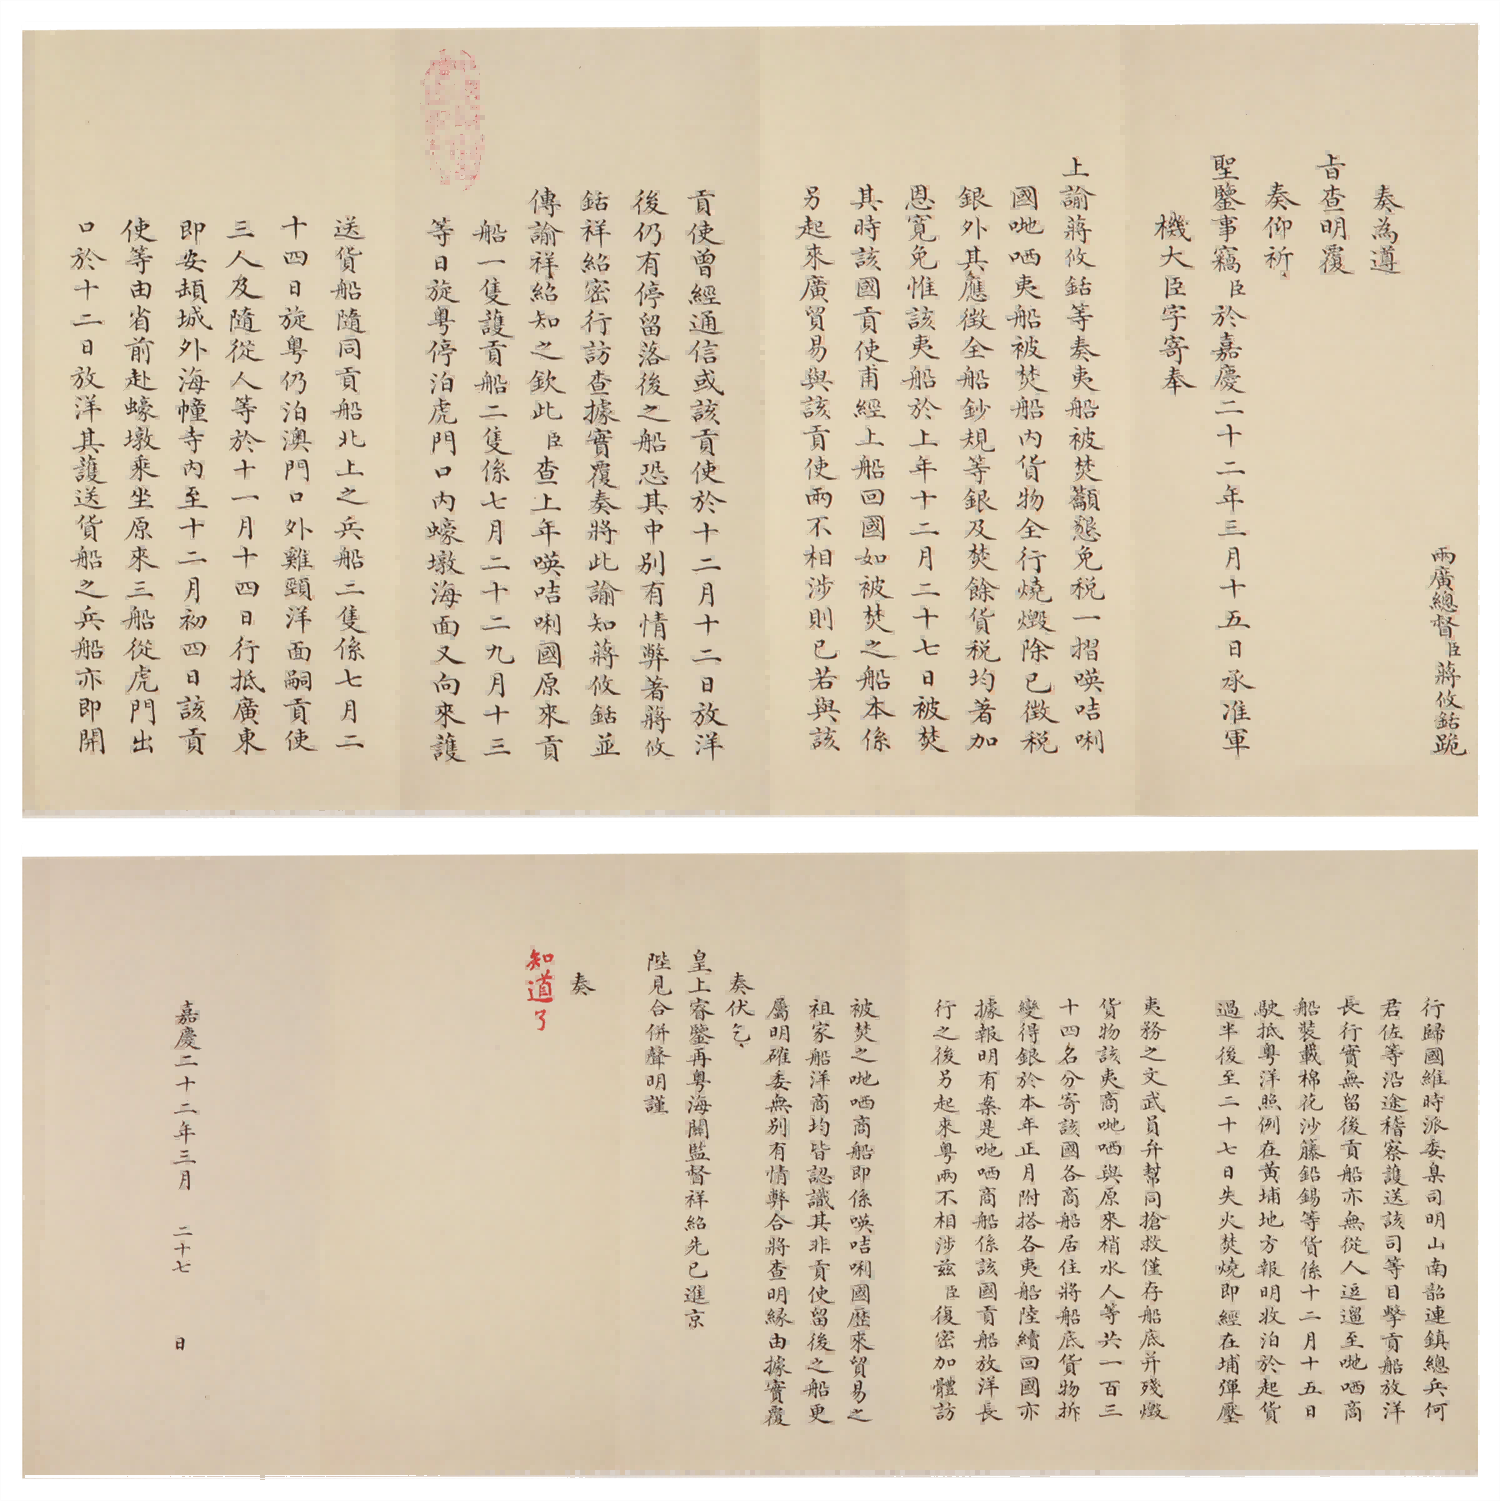 兩廣總督臣蔣攸銛跪
奏為遵
旨查明覆
奏仰祈
聖鑒事竊臣於嘉慶二十二年三月十五日承准軍
機大臣字寄奉
上諭蔣攸銛等奏夷船被焚籲懇免稅一摺𠸄咭唎
國𠵽哂夷船被焚船內貨物全行燒燬除已徵稅
銀外其應徵全船鈔規等銀及焚餘貨稅均著加
恩寬免惟該夷船於上年十二月二十七日被焚
其時該國貢使甫經上船回國如被焚之船本係
另起來廣貿易與該貢使兩不相涉則已若與該
貢使曾經通信或該貢使於十二月十二日放洋
後仍有停留落後之船恐其中別有情弊著蔣攸
銛祥紹密行訪查據實覆奏將此諭知蔣攸銛並
傳諭祥紹知之欽此臣查上年𠸄咭唎國原來貢
船一隻護貢船二隻係七月二十二九月十三
等日旋粵停泊虎門口內蠔墩海面又向來護
送貨船隨同貢船北上之兵船二隻係七月二
十四日旋粵仍泊澳門口外雞頸洋面嗣貢使
三人及隨從人等於十一月十四日行抵廣東
即安頓城外海幢寺內至十二月初四日該貢
使等由省前赴蠔墩乘坐原來三船從虎門出
口於十二日放洋其護送貨船之兵船亦即開
行歸國維時派委臬司明山南韶連鎮總兵何
君佐等沿途稽察護送該司等目擊貢船放洋
長行實無留後貢船亦無從人逗遛至𠵽哂商
船裝載棉花沙籐鉛錫等貨係十二月十五日
駛抵粵洋照例在黃埔地方報明收泊於起貨
過半後至二十七日失火焚燒即經在埔彈壓
夷務之文武員弁幫同搶救僅存船底并殘燬
貨物該夷商𠵽哂與原來梢水人等共一百三
十四名分寄該國各商船居住將船底貨物拆
變得銀於本年正月附搭各夷船陸續回國亦
據報明有案是𠵽哂商船係該國貢船放洋長
行之後另起來粵兩不相涉茲臣復密加體訪
被焚之𠵽哂商船即係𠸄咭唎國歷來貿易之
祖家船洋商均皆認識其非貢使留後之船更
屬明確委無別有情弊合將查明緣由據實覆
奏伏乞
皇上睿鑒再粵海關監督祥紹先已進京
陛見合併聲明謹
奏
知道了
嘉慶二十二年三月　二十七　日